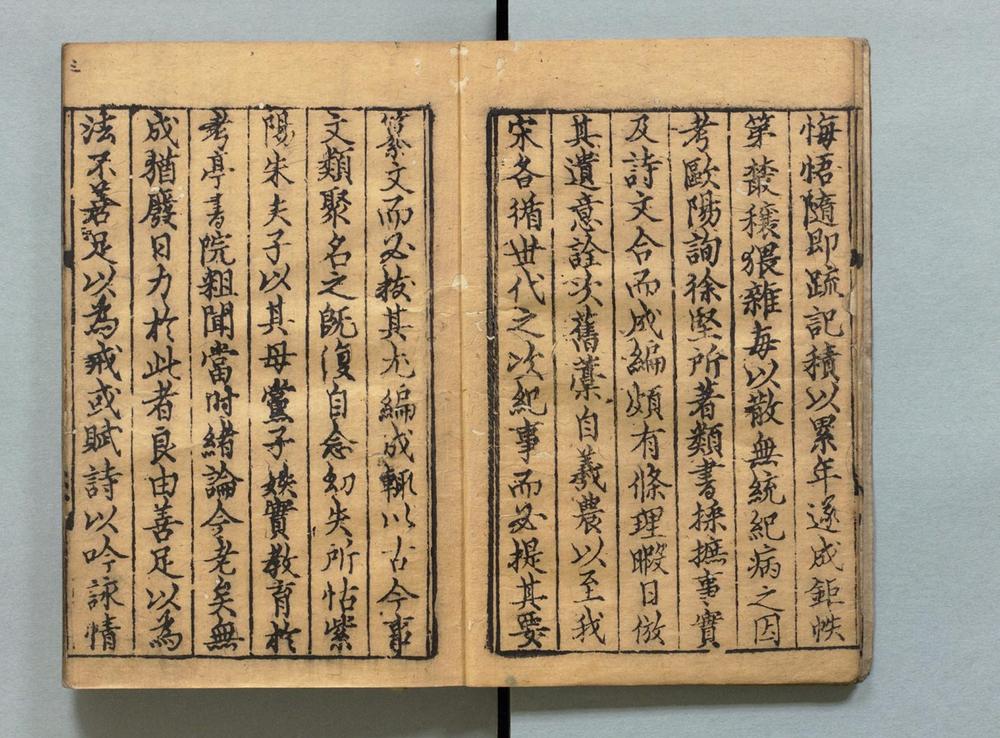 悔悟隨即疏記積以累年遂成鉅帙
第叢穰猥雜每以散無統紀病之因
考歐陽詢徐堅所著類書採摭事實
及詩文合而成編頗有條理暇日倣
其遺意詮次舊藁自羲農以至我
宋各循世代之次紀事而必提其要
纂文而必拔其尤編成輙以古今事
文類聚名之既復自念幼失所怙紫
陽朱夫子以其母黨子姪實教育於
考亭書院粗聞當时緒論今老矣無
成猶廢日力於此者良由善足以為
法不善足以為戒或賦詩以吟詠情
三